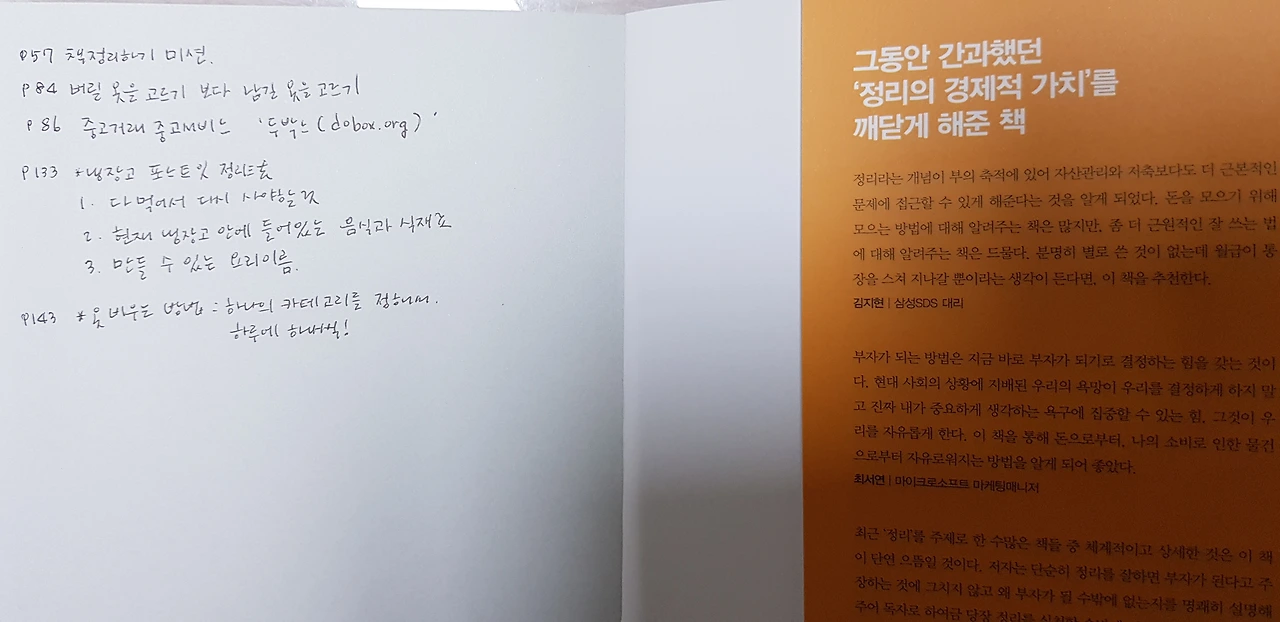 P57 책정리하기 미션.
P84 버릴 옷을 고르기 보다 남길 옷을 고르기
P86 중고거래 중고서비스 '두박스(dobox.org)'
P133 *냉장고 포스트잇 정리법
1. 다 먹어서 다시 사야하는 것
2. 현재 냉장고 안에 들어있는 음식과 식재료
3. 만들 수 있는 요리이름.
P143 *옷 비우는 방법 : 하나의 카테고리를 정해서.
하루에 하나씩!
그동안 간과했던
'정리의 경제적 가치'를
깨닫게 해준 책
정리라는 개념이 부의 축적에 있어 자산관리와 저축보다도 더 근본적인
문제에 접근할 수 있게 해준다는 것을 알게 되었다. 돈을 모으기 위해
모으는 방법에 대해 알려주는 책은 많지만, 좀 더 근원적인 잘 쓰는 법
에 대해 알려주는 책은 드물다. 분명히 별로 쓴 것이 없는데 월급이 통
장을 스쳐 지나갈 뿐이라는 생각이 든다면, 이 책을 추천한다.
김지현 | 삼성SDS 대리
부자가 되는 방법은 지금 바로 부자가 되기로 결정하는 힘을 갖는 것이
다. 현대 사회의 상황에 지배된 우리의 욕망이 우리를 결정하게 하지 말
고 진짜 내가 중요하게 생각하는 욕구에 집중할 수 있는 힘, 그것이 우
리를 자유롭게 한다. 이 책을 통해 돈으로부터, 나의 소비로 인한 물건
으로부터 자유로워지는 방법을 알게 되어 좋았다.
최서연 | 마이크로소프트 마케팅매니저
최근 '정리'를 주제로 한 수많은 책들 중 체계적이고 상세한 것은 이 책
이 단연 으뜸일 것이다. 저자는 단순히 정리를 잘하면 부자가 된다고 주
장하는 것에 그치지 않고 왜 부자가 될 수밖에 없는지를 명쾌히 설명해
주어 독자로 하여금 당장 정리를